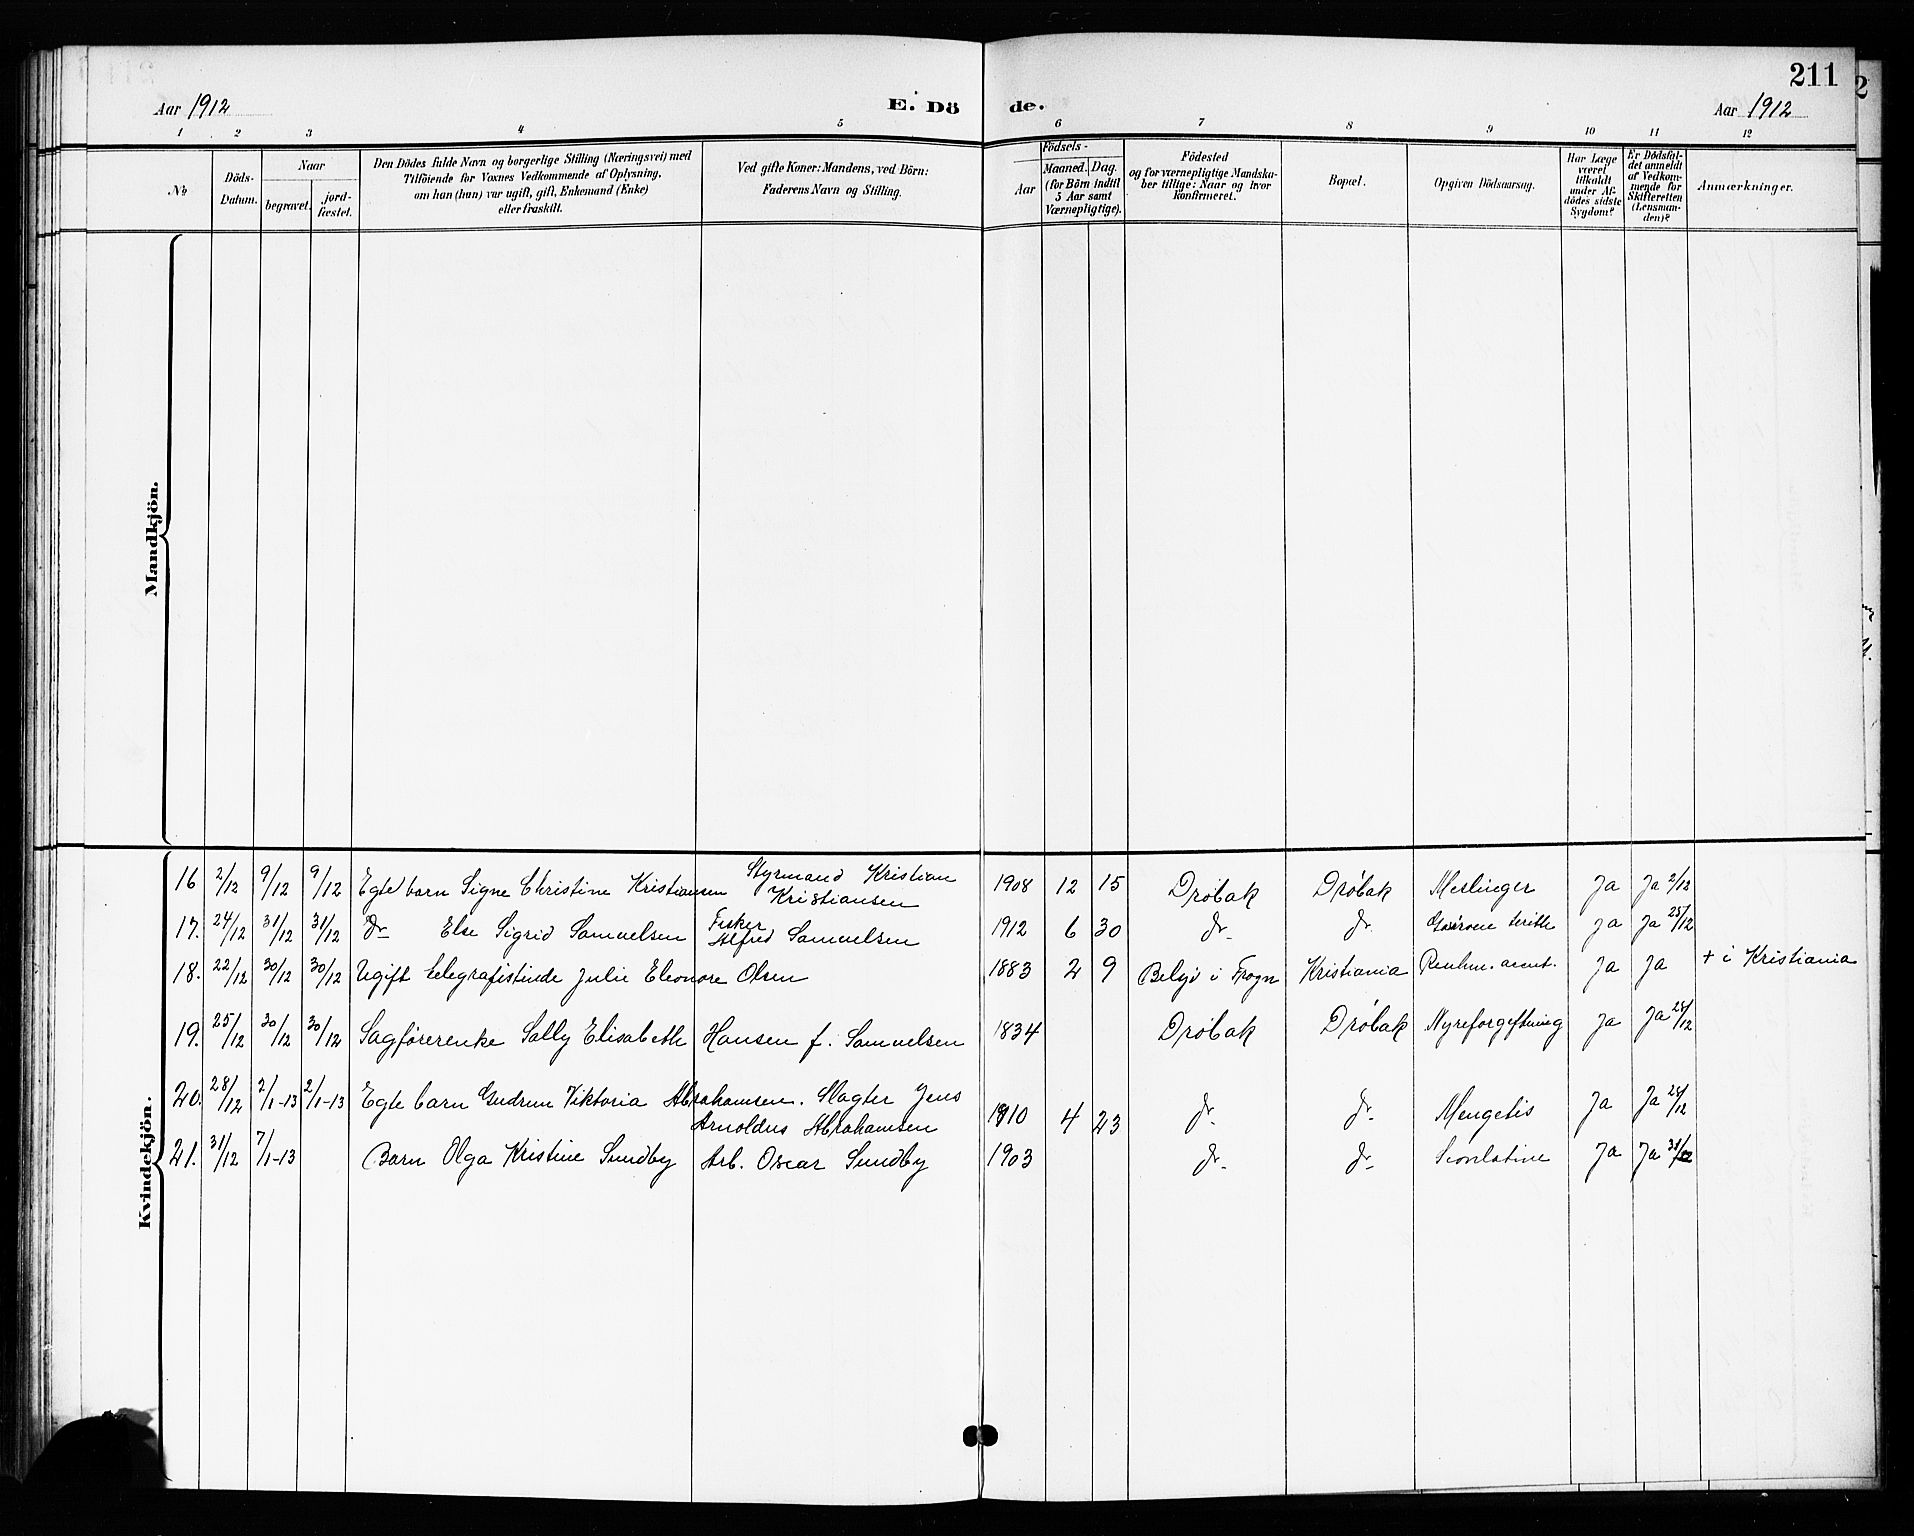 211
Aar 1912 E. Dö de. Aar 1912
1 2 3 4 5 6 7 8 9 10 11 12
No
Döds-
Datum.
Naar
begravet.
jord-
fæstet.
Den Dödes fulde Navn og borgerlige Stilling (Næringsvei) med
Tilföiende for Voxnes Vedkommende af Oplysning,
om han (hun) var ugift, gift, Enkemand (Enke)
eller fraskilt.
Ved gifte Koner: Mandens, ved Börn:
Faderens Navn og Stilling.
Födsels-
Aar
Maaned. Dag.
(for Börn indtil
5 Aar samt
Værnepligtige).
Födested
og for værnepligtige Mandska-
ber tillige: Naar og hvor
konfirmeret.
Bopæl.
Opgiven Dödsaarsag.
Har Læge
været
tilkaldt
under Af-
dödes sidste
Sygdom?
Er Dödsfal-
det anmeldt
af Vedkom-
mende for
Skifteretten
(Lensman-
den)?
Anmærkninger.
Mandkjön.
Kvindekjön.
16 2/12 9/12 9/12 Egte barn Signe Christine Kristiansen Styrmand Kristian
Kristiansen 1908 12 15 Drøbak Drøbak Meslinger Ja Ja 2/12
17. 24/12 31/12 31/12 do Else Sigrid Samuelsen Fisker
Alfred Samuelsen 1912 6 30 do do Ja Ja 25/12
18. 22/12 30/12 30/12 Ugift telegrafistinde Julie Eleonore Olsen 1883 2 9 i Frogn Kristiania Ja Ja + i Kristiania
19. 25/12 30/12 30/12 Sagførerenke Sally Elisabeth Hansen f. Samuelsen 1834 Drøbak Drøbak Nyreforgiftning Ja Ja 28/12
20. 28/12 2/1-13 2/1-13 Egte barn Gudrun Viktoria Abrahamsen. Slagter Jens
Arnoldus Abrahamsen 1910 4 23 do do Ja Ja 28/12
21. 31/12 7/1-13 Barn Olga Kristine Sundby Arb. Oscar Sundby 1903 do do Ja Ja 31/12